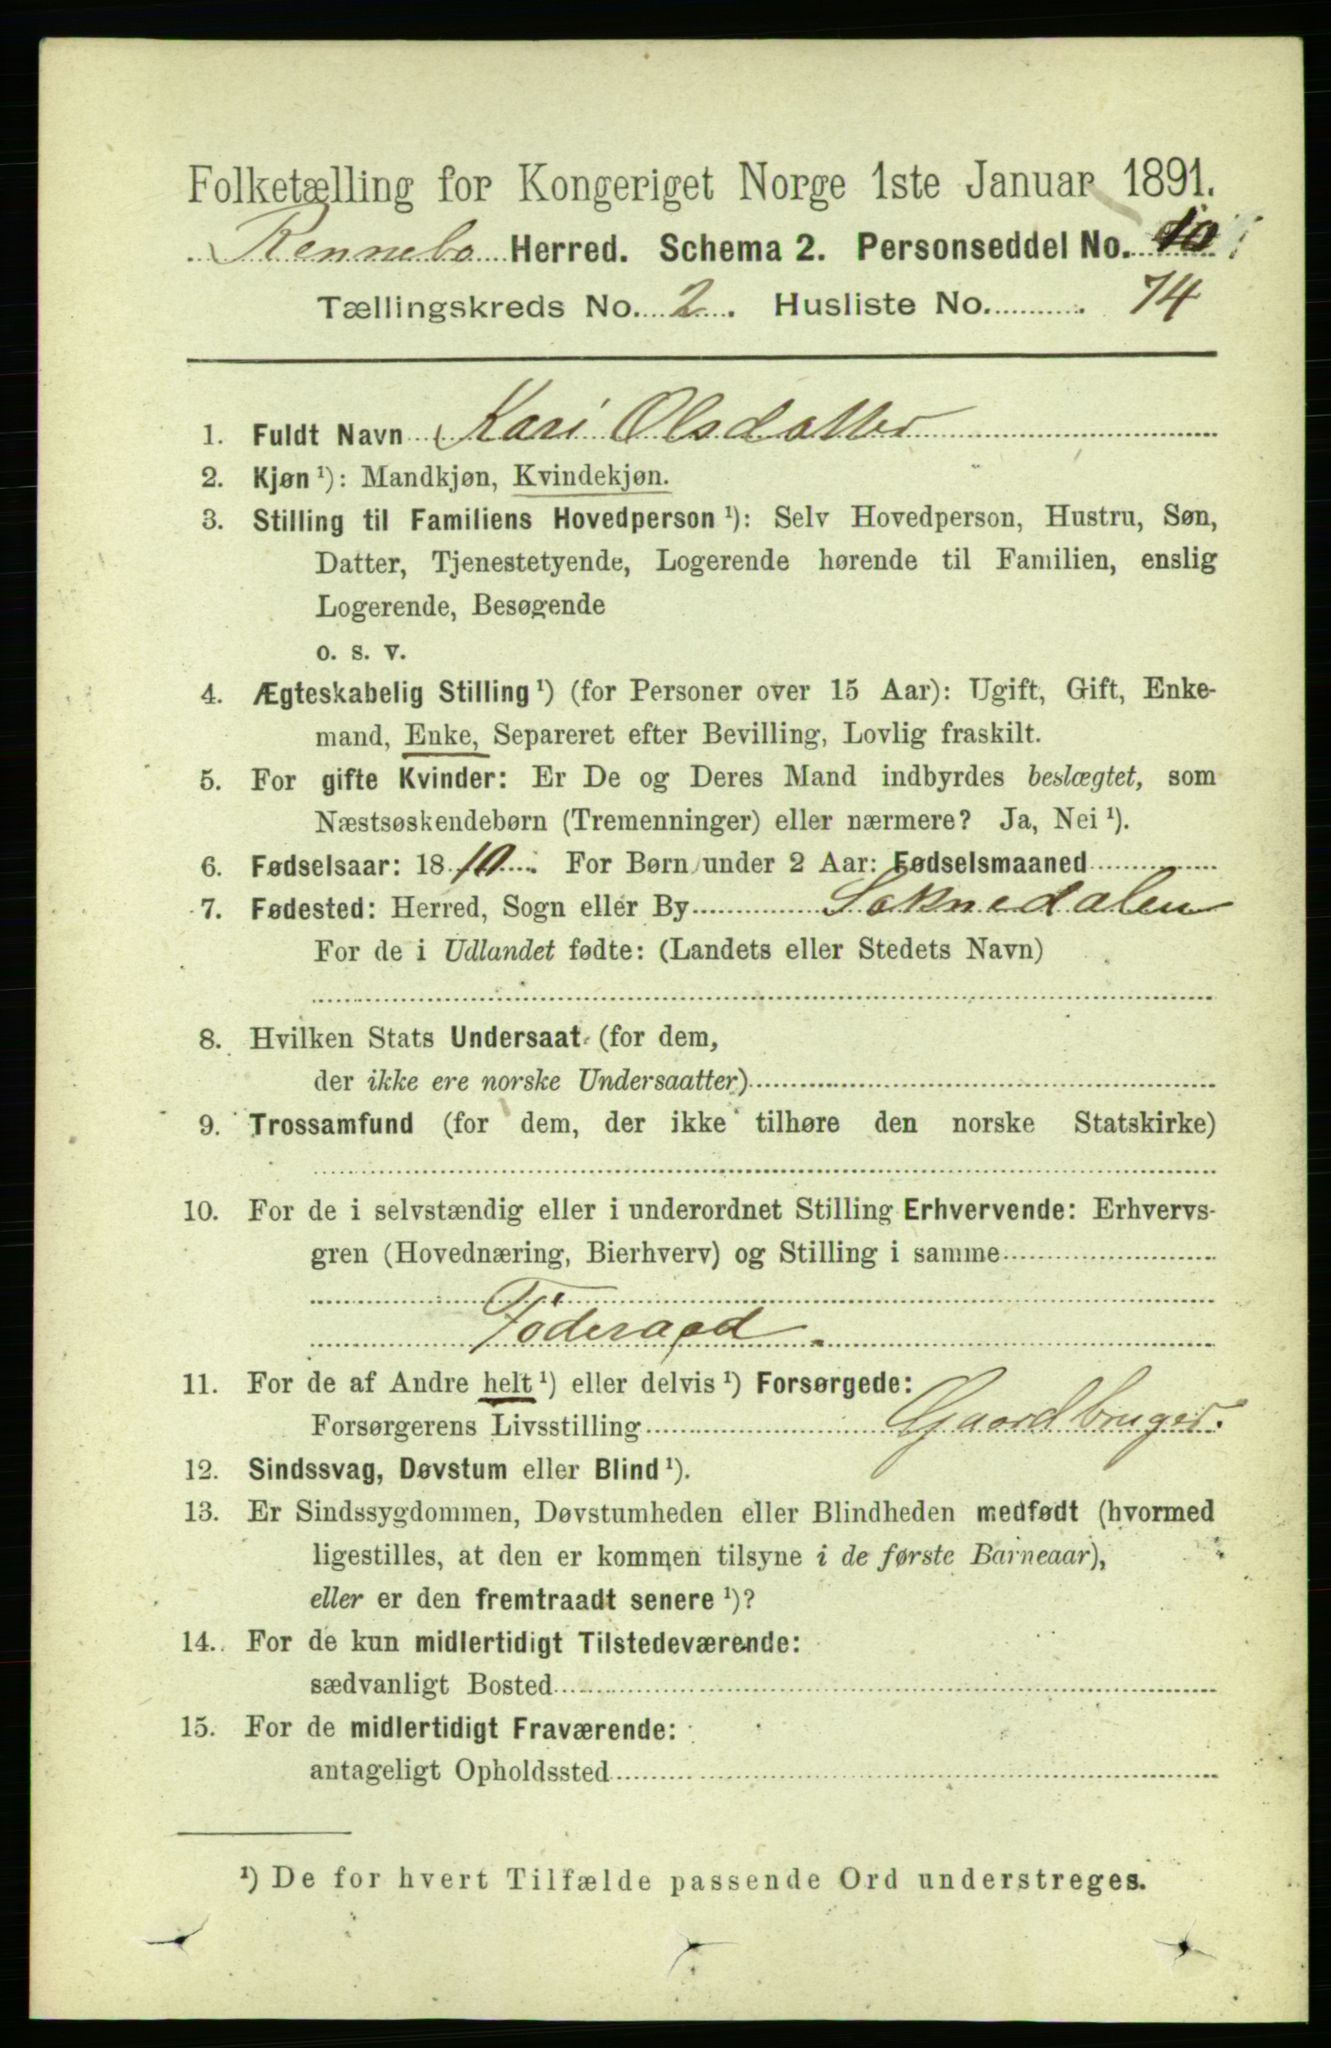 Folketælling for Kongeriget Norge 1ste Januar 1891.
Rennebo Herred. Schema 2. Personseddel No. 10
Tællingskreds No. 2. Husliste No. 74
1. Fuldt Navn Kari Olsdatter
2. Kjøn ¹): Mandkjøn, Kvindekjøn.
3. Stilling til Familiens Hovedperson ¹): Selv Hovedperson, Hustru, Søn,
Datter, Tjenestetyende, Logerende hørende til Familien, enslig
Logerende, Besøgende
o. s. v.
4. Ægteskabelig Stilling ¹) (for Personer over 15 Aar): Ugift, Gift, Enke-
mand, Enke, Separeret efter Bevilling, Lovlig fraskilt.
5. For gifte Kvinder: Er De og Deres Mand indbyrdes beslægtet, som
Næstsøskendebørn (Tremenninger) eller nærmere? Ja, Nei ¹).
6. Fødselsaar: 1810. For Børn under 2 Aar: Fødselsmaaned
7. Fødested: Herred, Sogn eller By Soknedalen
For de i Udlandet fødte: (Landets eller Stedets Navn)
8. Hvilken Stats Undersaat (for dem,
der ikke ere norske Undersaatter)
9. Trossamfund (for dem, der ikke tilhøre den norske Statskirke)
10. For de i selvstændig eller i underordnet Stilling Erhvervende: Erhvervs-
gren (Hovednæring, Bierhverv) og Stilling i samme
Föderaad
11. For de af Andre helt ¹) eller delvis ¹) Forsørgede:
Forsørgerens Livsstilling Gaardbruger.
12. Sindssvag, Døvstum eller Blind ¹).
13. Er Sindssygdommen, Døvstumheden eller Blindheden medfødt (hvormed
ligestilles, at den er kommen tilsyne i de første Barneaar),
eller er den fremtraadt senere ¹)?
14. For de kun midlertidigt Tilstedeværende:
sædvanligt Bosted
15. For de midlertidigt Fraværende:
antageligt Opholdssted
¹) De for hvert Tilfælde passende Ord understreges.